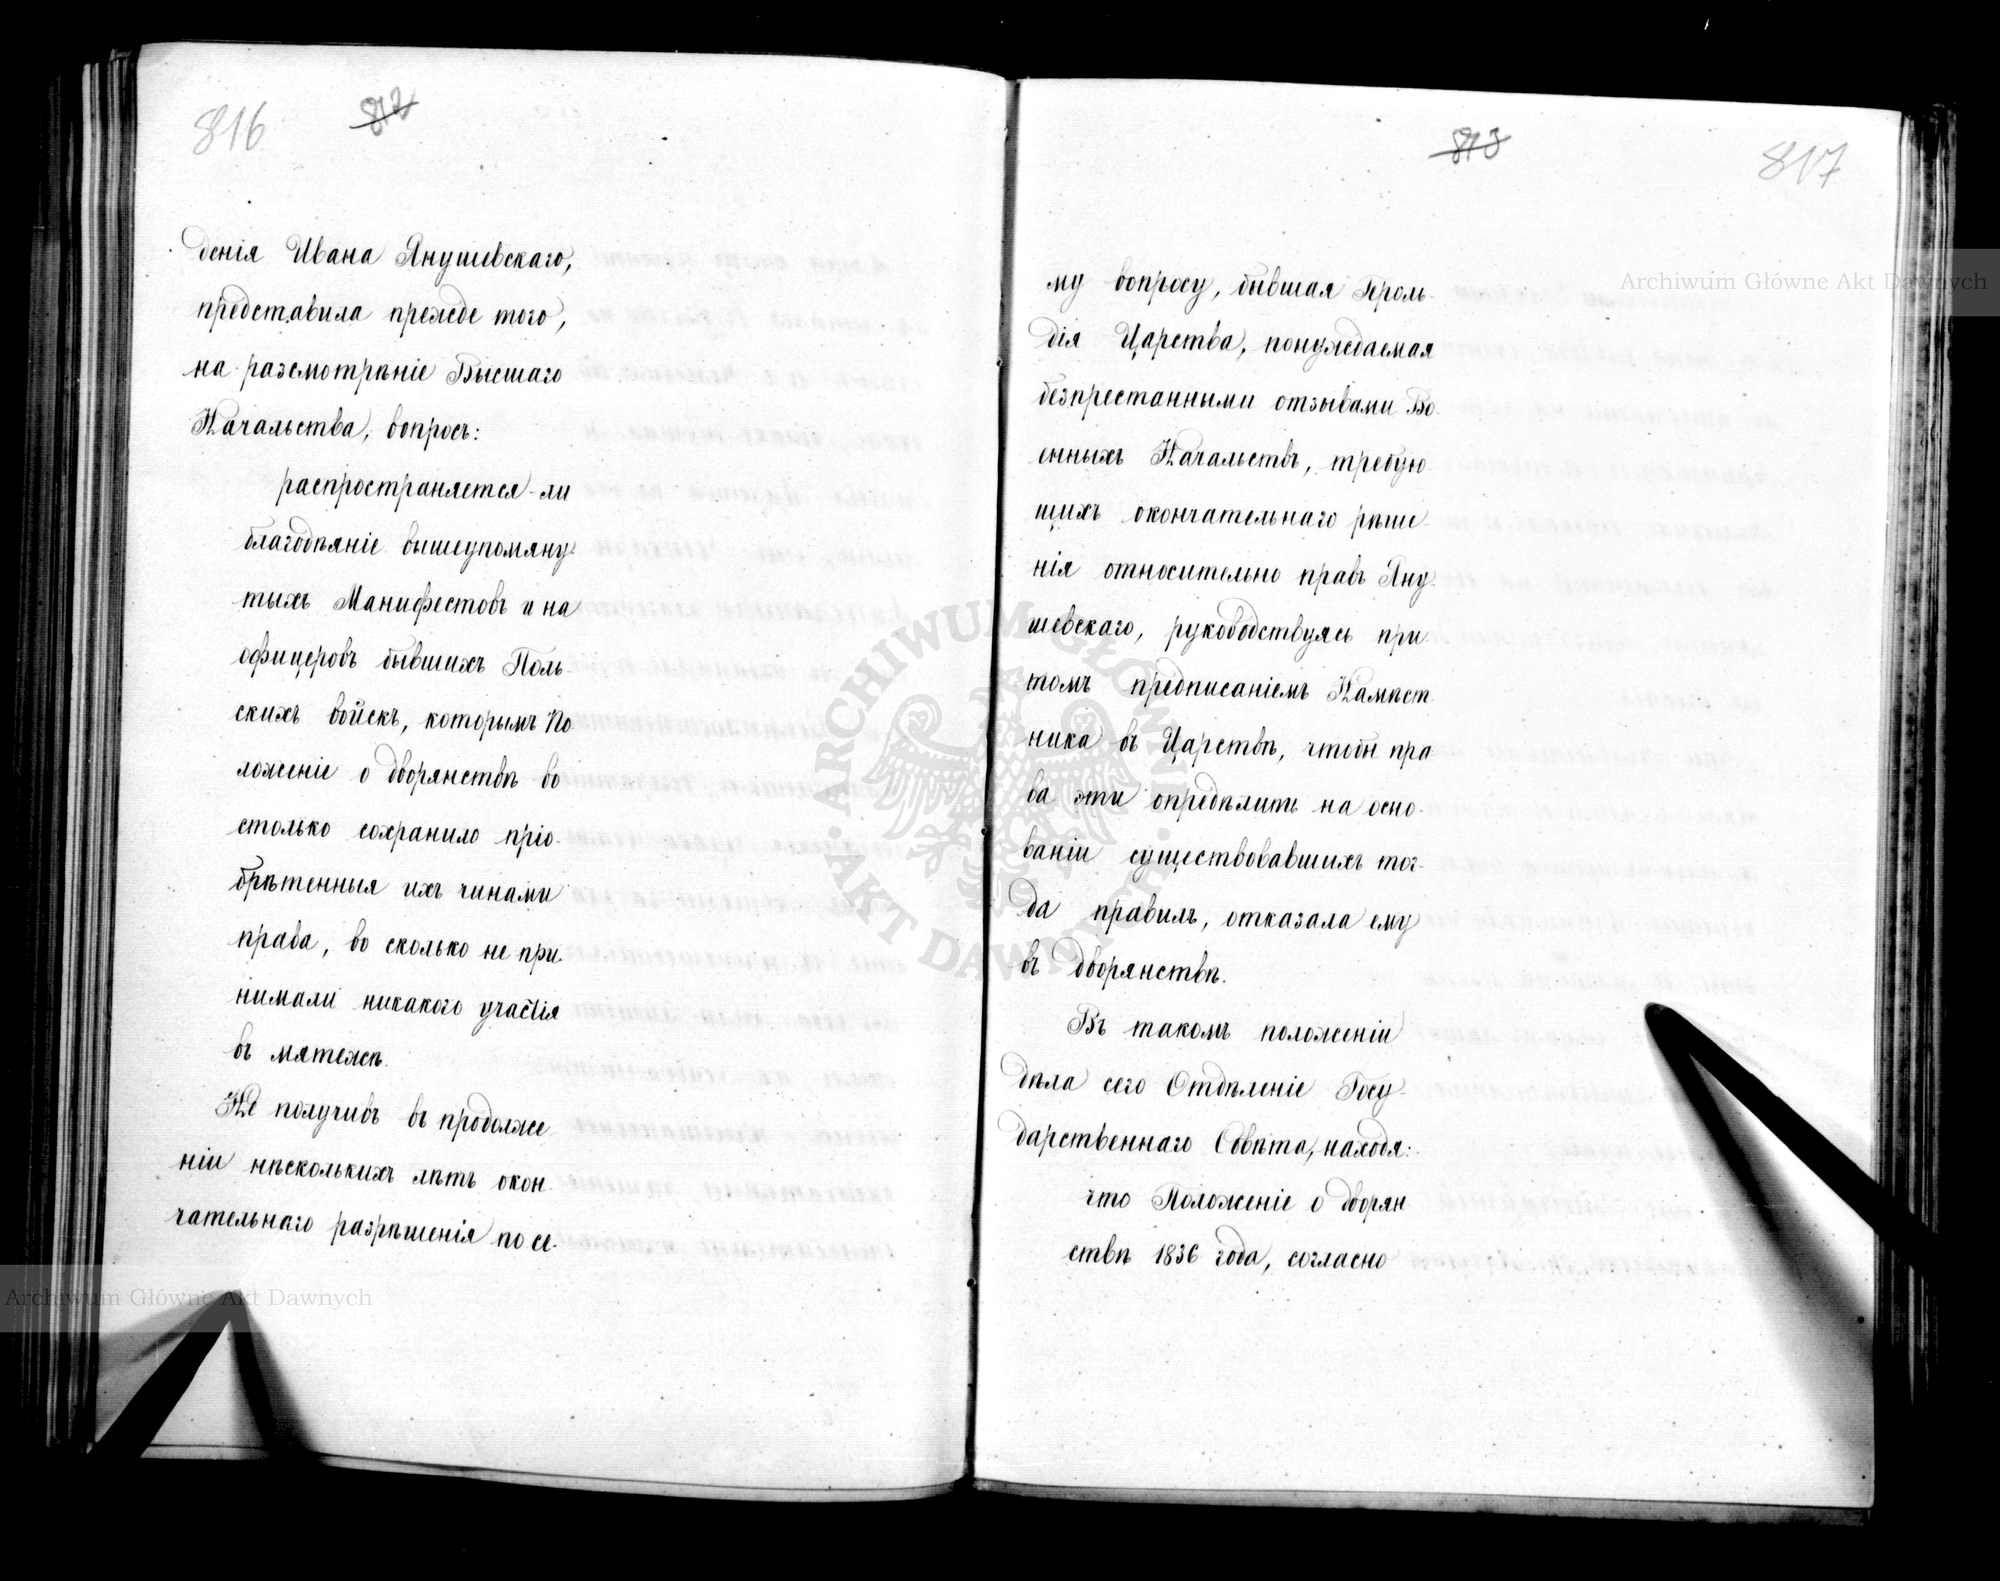 816
812
денія Ивана Янушевскаго,
представила прежде того,
на разсмотрѣніе Высшаго
Начальства, вопросъ:
распространяется-ли
благодѣяніе вышеупомяну-
тыхъ Манифестовъ и на
офицеровъ бывшихъ Поль-
скихъ войскъ, которымъ По
ложеніе о дворянствѣ во
столько сохранило прiо-
брѣтенныя ихъ чинами
права, во сколько не при
нимали никакого участія
въ мятежѣ.
Не получивъ въ продолже-
ніи нѣсколькихъ лѣтъ окон-
чательнаго разрѣшенія по се-
813
817
му вопросу, бывшая Героль-
дія Царства, понуждаемая
безпрестанными отзывами Во-
енныхъ Начальствъ, требую-
щихъ окончательнаго рѣше-
нія относительно правъ Яну-
шевскаго, руководствуясь при
томъ предписаніемъ Намѣст-
ника въ Царствѣ, чтобы пра
ва эти опредѣлить на осно-
ваніи существовавшихъ тог-
да правилъ, отказала ему
въ дворянствѣ.
Въ такомъ положеніи
дѣла сего Отдѣленіе Госу-
дарственнаго Совѣта, находя:
что Положеніе о дворян
ствѣ 1836 года, согласно
Archiwum Główne Akt Dawnych
Archiwum Główne Akt Dawnych
ARCHIWUM GŁÓWNE AKT DAWNYCH